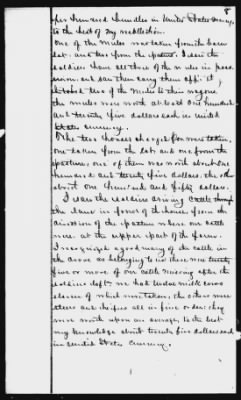 8
per hundred bundles in United States Currency
to the best of my recollection.
One of the mules was taken from the barn
lot and two from the pasture. I saw the
soldiers have all three of the mules in poss
ession and saw them carry them off. I
two of the mules to their wagons.
the mules were worth at least one hundred
and twenty five dollars each in united
States currency.
The two horses charged for were taken,
one taken from the lot and one from the
pasture, one of them was worth about one
hundred and twenty five dollars. the other
about one hundred and fifty dollars.
I saw the soldiers driving cattle through
the lane in front of the house from the
direction of the pasture where our cattle
were at the upper part of the farm.
I recognized a good many of the cattle in
the drove as belonging to us there were twenty
five or more of our cattle missing after the
soldiers left. we had milk cows
eleven of which were taken, the others were
steers and heifers all in fine order. they
were worth upon an average, to the best
my knowledge about twenty five dollars each
in United States Currency.